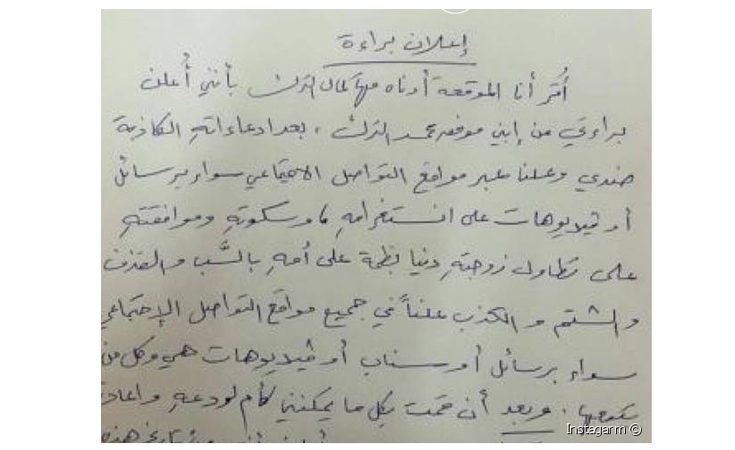 إعلان براءة
أُقر أنا الموقعة أدناه مها كمال الترك بأنني أُعلن
براءتي من إبني موفق محمد الترك ، بعد ادعاءاته الكاذبة
ضدي وعلناً عبر مواقع التواصل الاجتماعي سواء برسائل
أو فيديوهات على انستغرامه وسكوته وموافقته
على تطاول زوجته دنيا بطمة على أمه بالسَّب والقذف
والشتم والكذب علناً في جميع مواقع التواصل الإجتماعي
سواء برسائل أو سناب أو فيديوهات هي وكل من
يتبعها . وبعد أن قمت بكل ما يمكنني كأم لردعه وإعادة
هذه
Instagarm ©